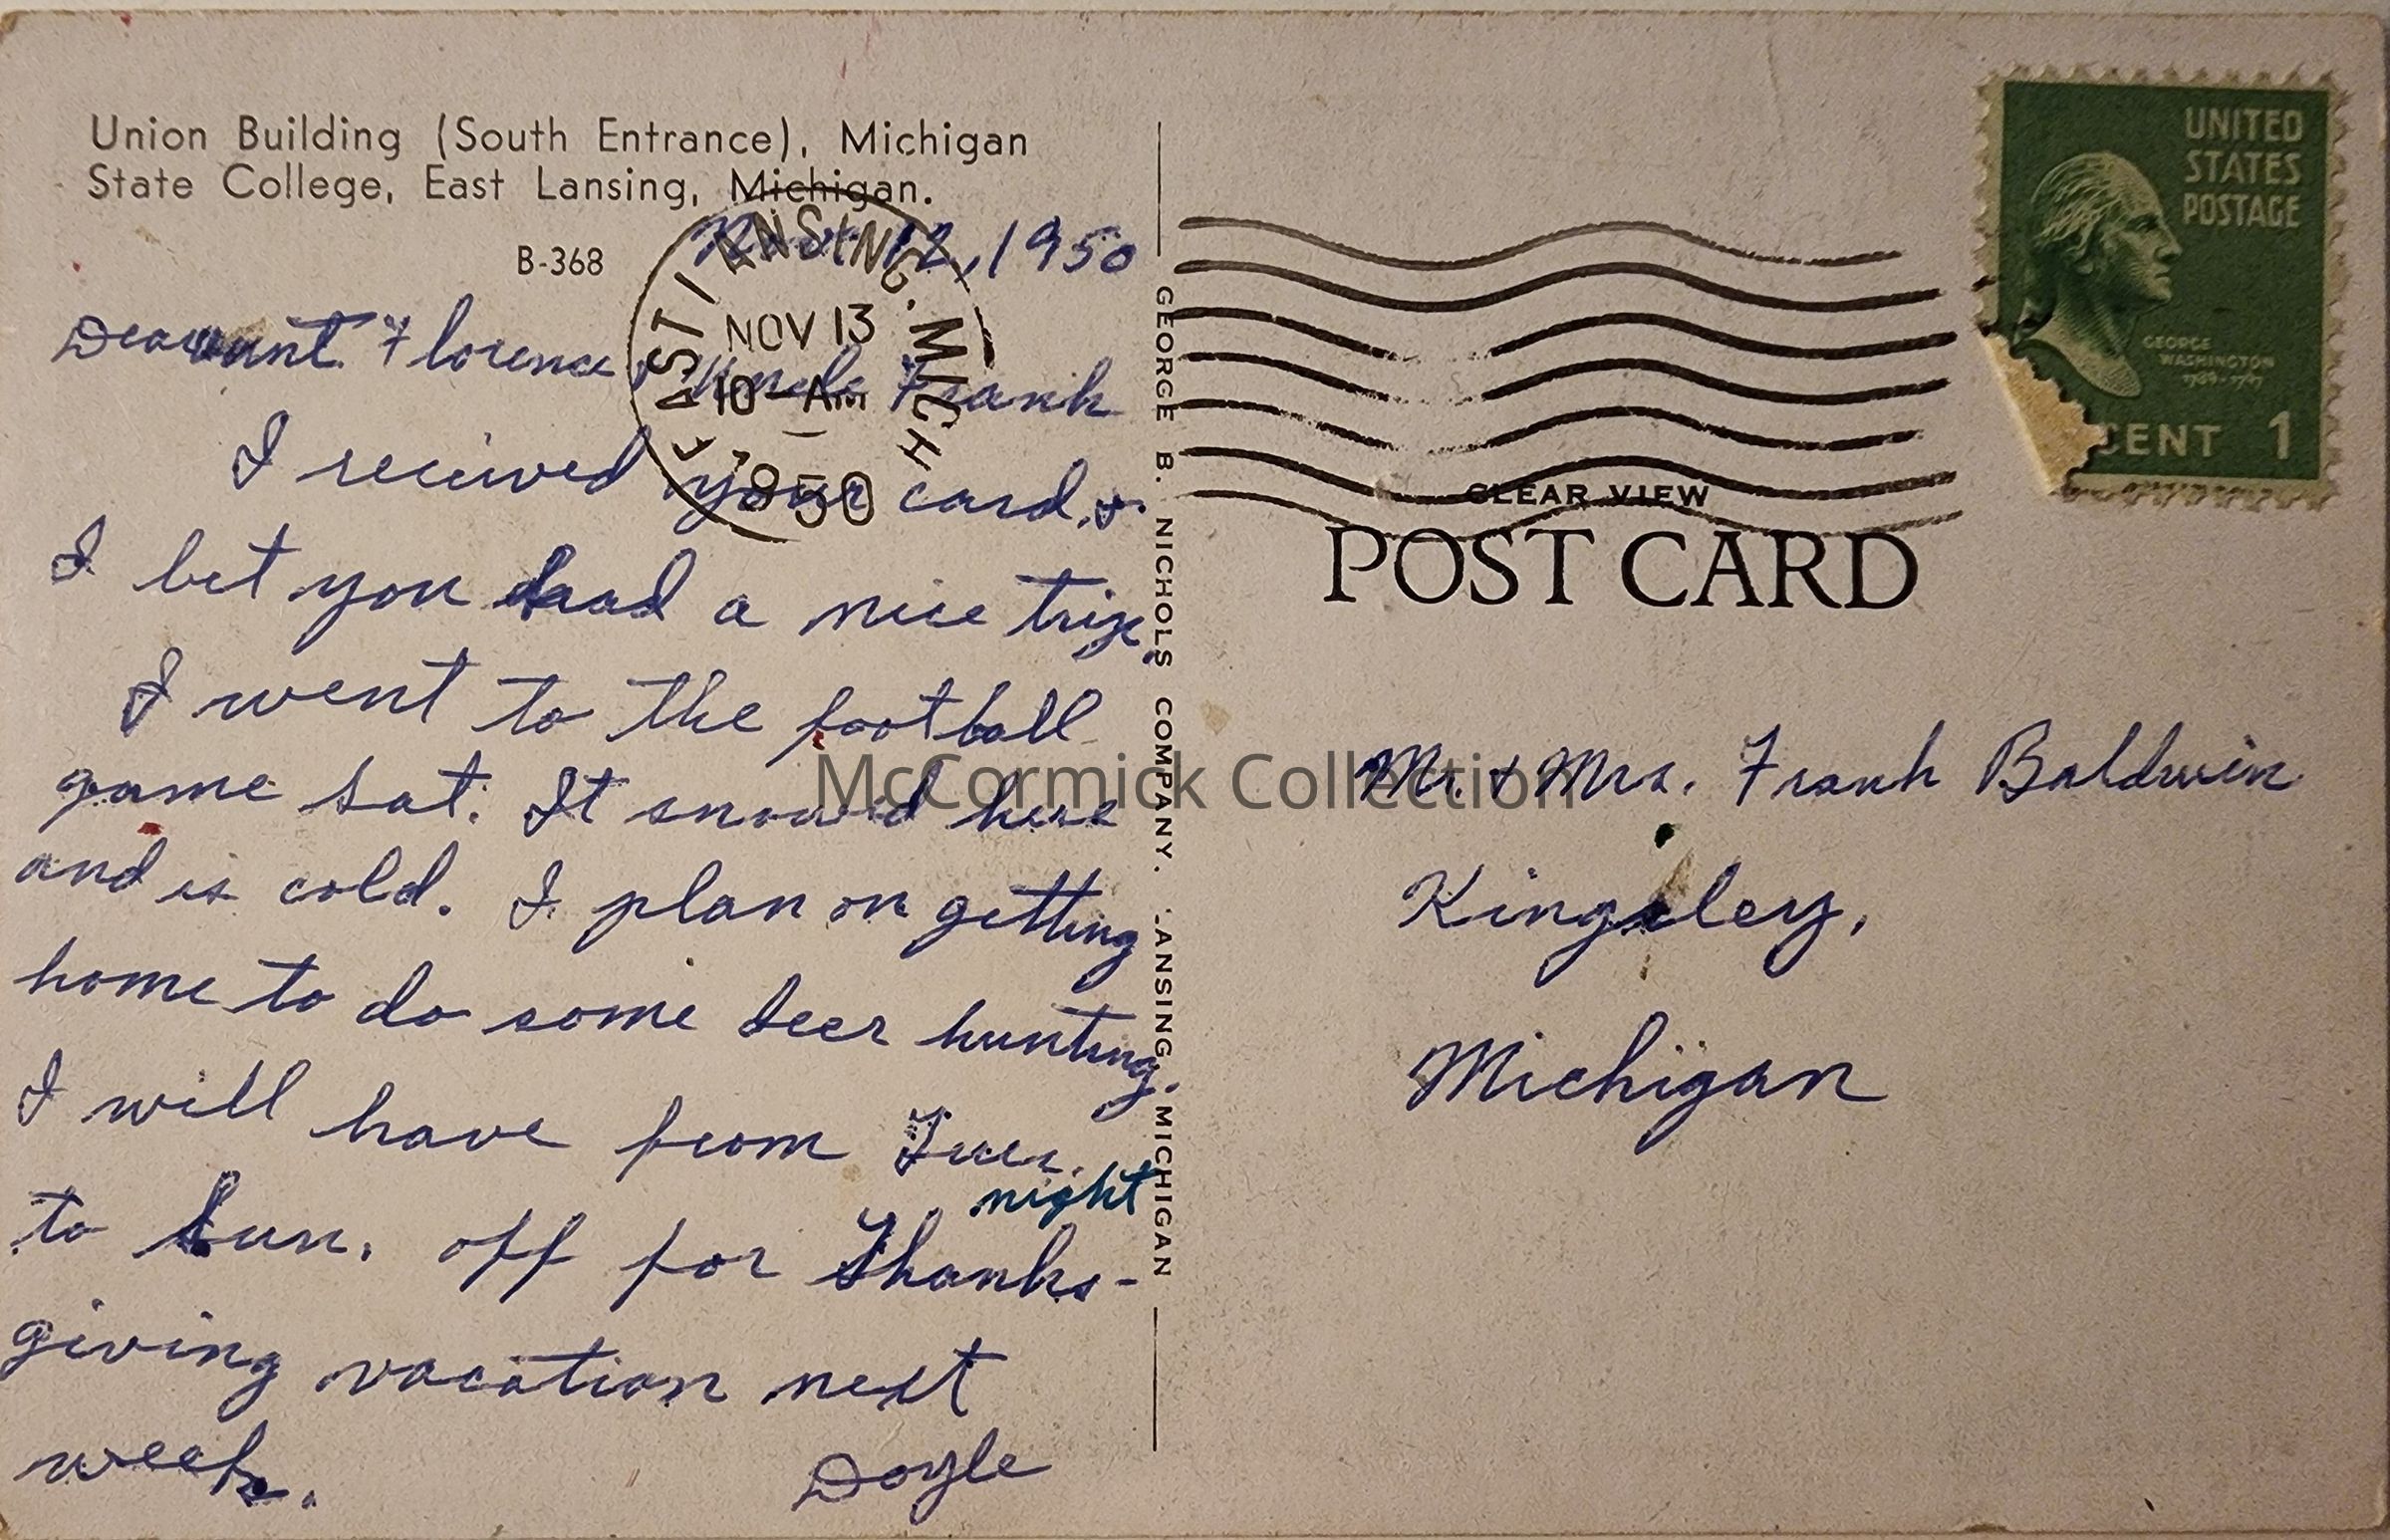 Union Building (South Entrance), Michigan
State College, East Lansing, Michigan.
B-368
Nov. 12, 1950
Dear Aunt Florence & Uncle Frank
I received your card, &
I bet you had a nice trip.
I went to the football
game sat. It snowed here
and is cold. I plan on getting
home to do some deer hunting.
I will have from Tues.
night
to Sun. off for Thanks-
giving vacation next
week.
Doyle
EAST LANSING, MICH
NOV 13
10 - AM
1950
GEORGE B. NICHOLS COMPANY. LANSING, MICHIGAN
UNITED
STATES
POSTAGE
GEORGE
WASHINGTON
1789-1797
CENT 1
CLEAR VIEW
POST CARD
Mr. & Mrs. Frank Baldwin
Kingsley,
Michigan
McCormick Collection